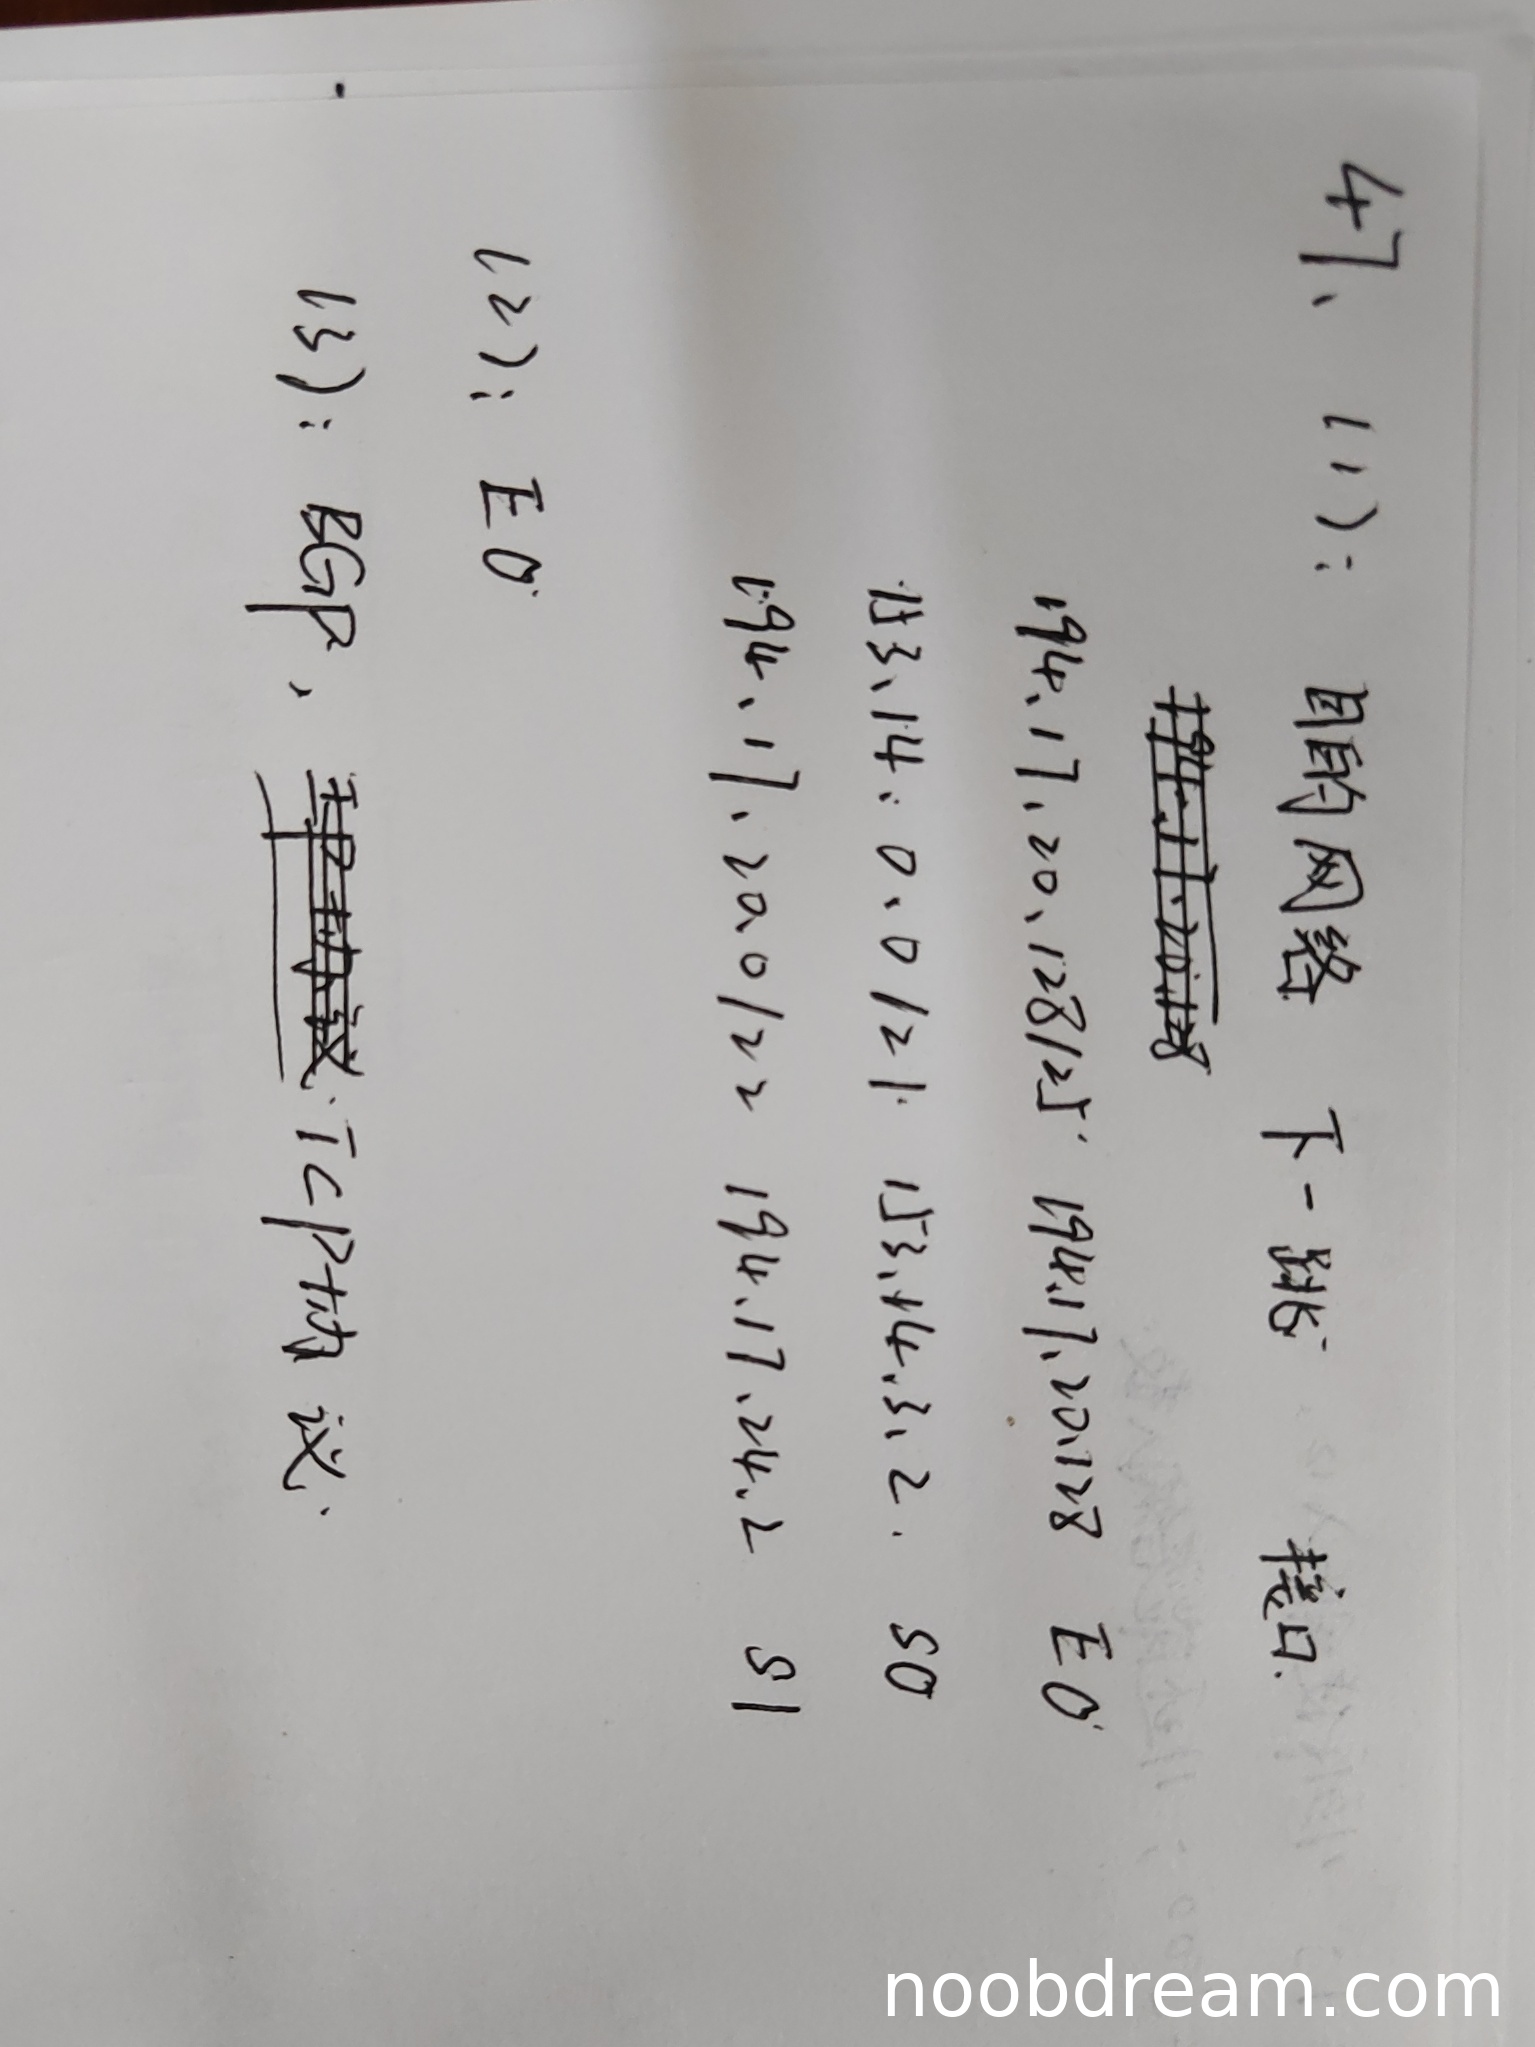 47、 (1): 目的网络 下一跳 接口.
194.17.20.128
194.17.20.128/25. 194.17.20.128 E0
153.14.0.0/21. 153.14.3.2. S0
194.17.20.0/22 194.17.24.2 S1
(2): E0
(3): BGP、 TCP协议.
noobdream.com